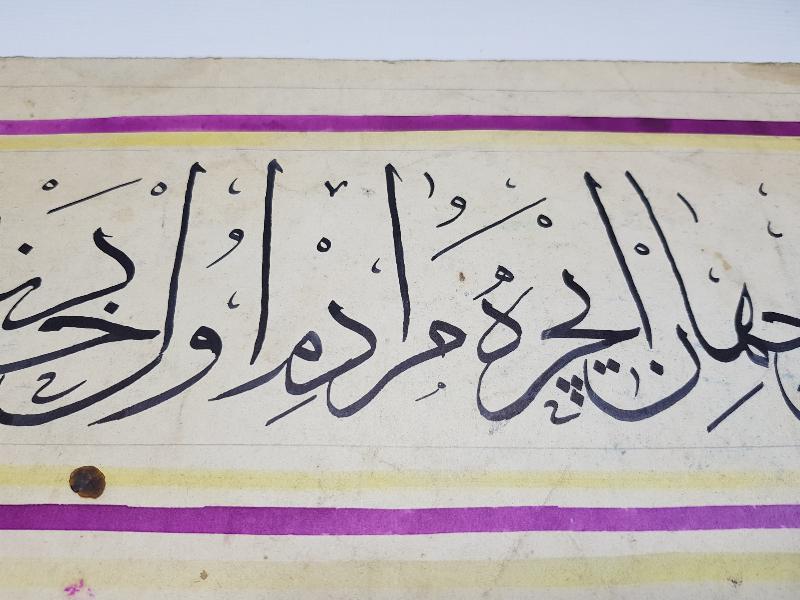 جهان ایچره مرادم اول